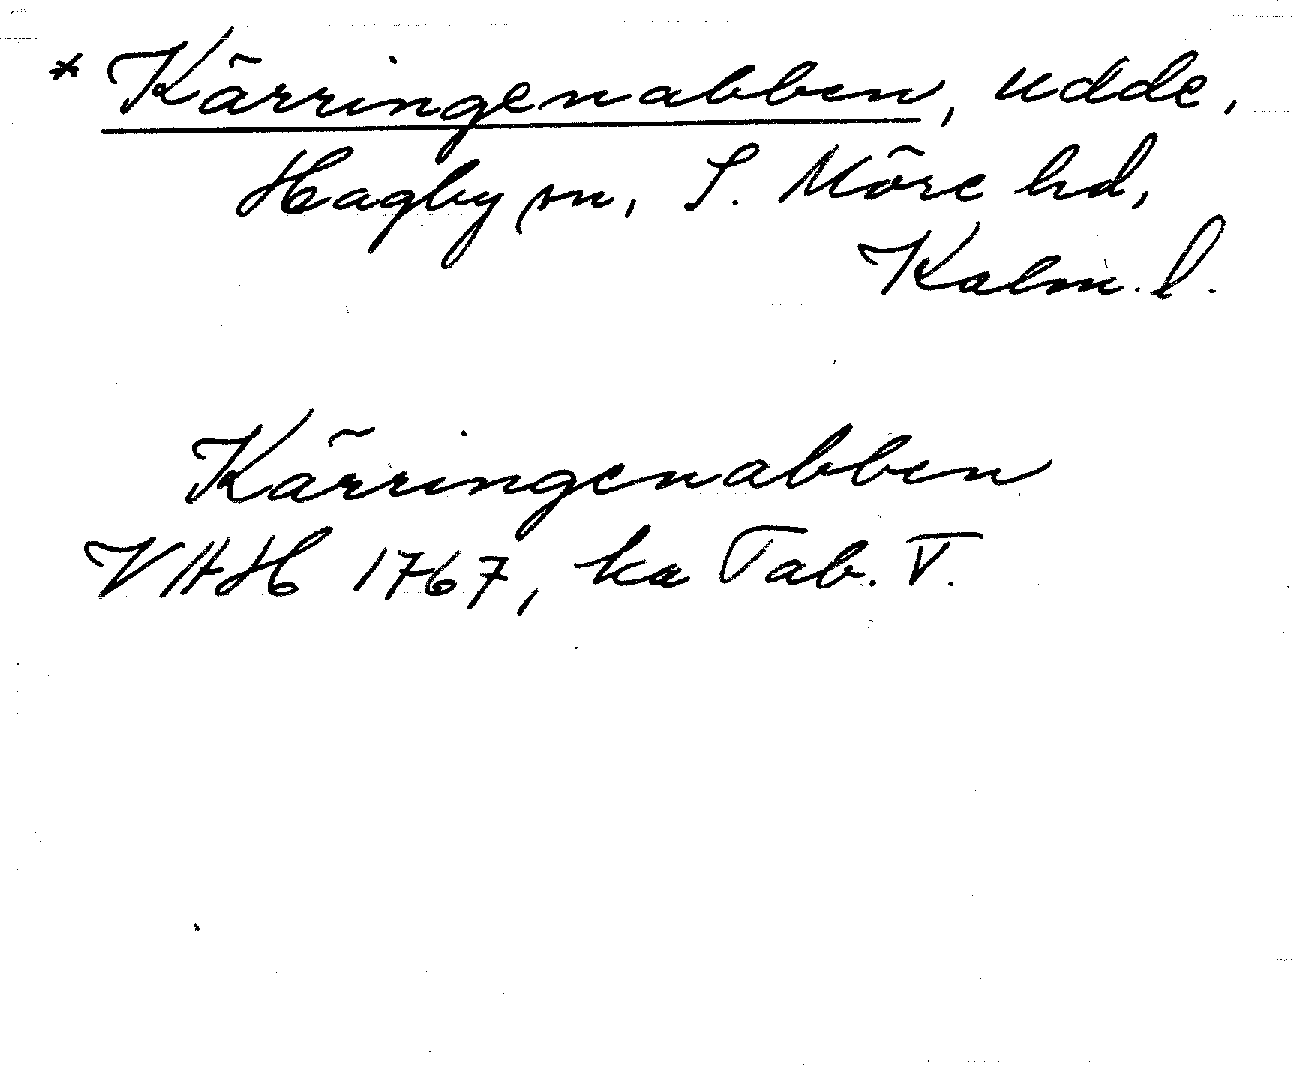 * Kärringenabben, udde,
Hagby sn, S. Möre hd,
Kalm. l.
Kärringenabben
VAH 1767, ka Tab. V.